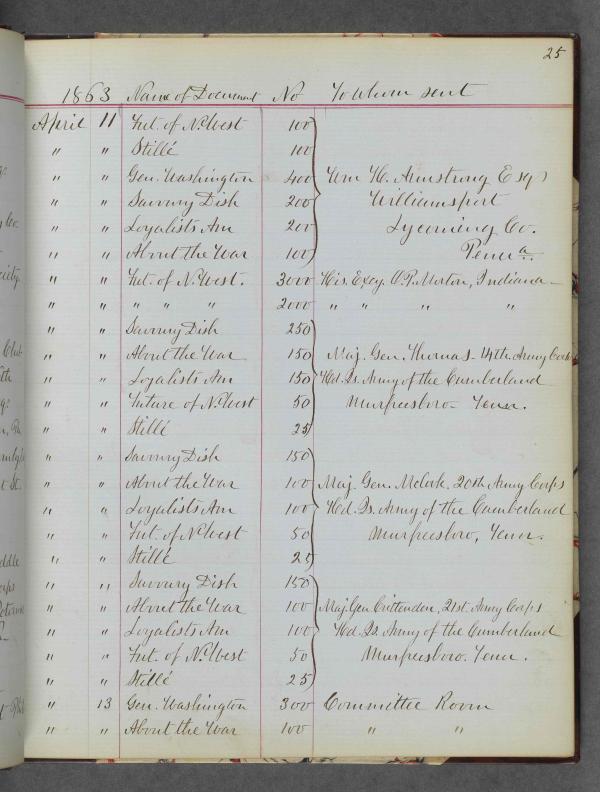 25
1863 Name of Document No To whom sent
April 11 Fut. of N. West 100
" " Stillé 100
" " Gen. Washington 400 Wm H. Armstrong Esq)
" " Savoury Dish 200 Williamsport
" " Loyalists Am 200 Lycoming Co.
" " About the War 100 Penna.
" " Fut. of N. West. 3000 His. Excy. O. P. Morton, Indiana
" " " " " " 2000 " " " "
" " Savoury Dish 250
" " About the War 150 Maj. Gen. Thomas 14th Army Corps
" " Loyalists Am 150 Hd. Qs. Army of the Cumberland
" " Future of N. West 50 Murfreesboro Tenn.
" " Stillé 25
" " Savoury Dish 150
" " About the War 100 Maj. Gen. McCook, 20th Army Corps
" " Loyalists Am 100 Hd. Qs. Army of the Cumberland
" " Fut. of N. West 50 Murfreesboro, Tenn.
" " Stillé 25
" " Savoury Dish 150
" " About the War 100 Maj. Gen Crittenden, 21st Army Corps
" " Loyalists Am 100 Hd. Qs. Army of the Cumberland
" " Fut. of N. West 50 Murfreesboro. Tenn.
" " Stillé 25
" 13 Gen. Washington 300 Committee Room
" " About the War 100 " "